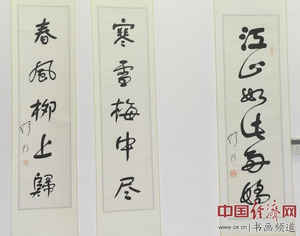 寒雪梅中尽
春风柳上歸
江山如此多嬌
中国经济网
www.ce.cn | 书画频道